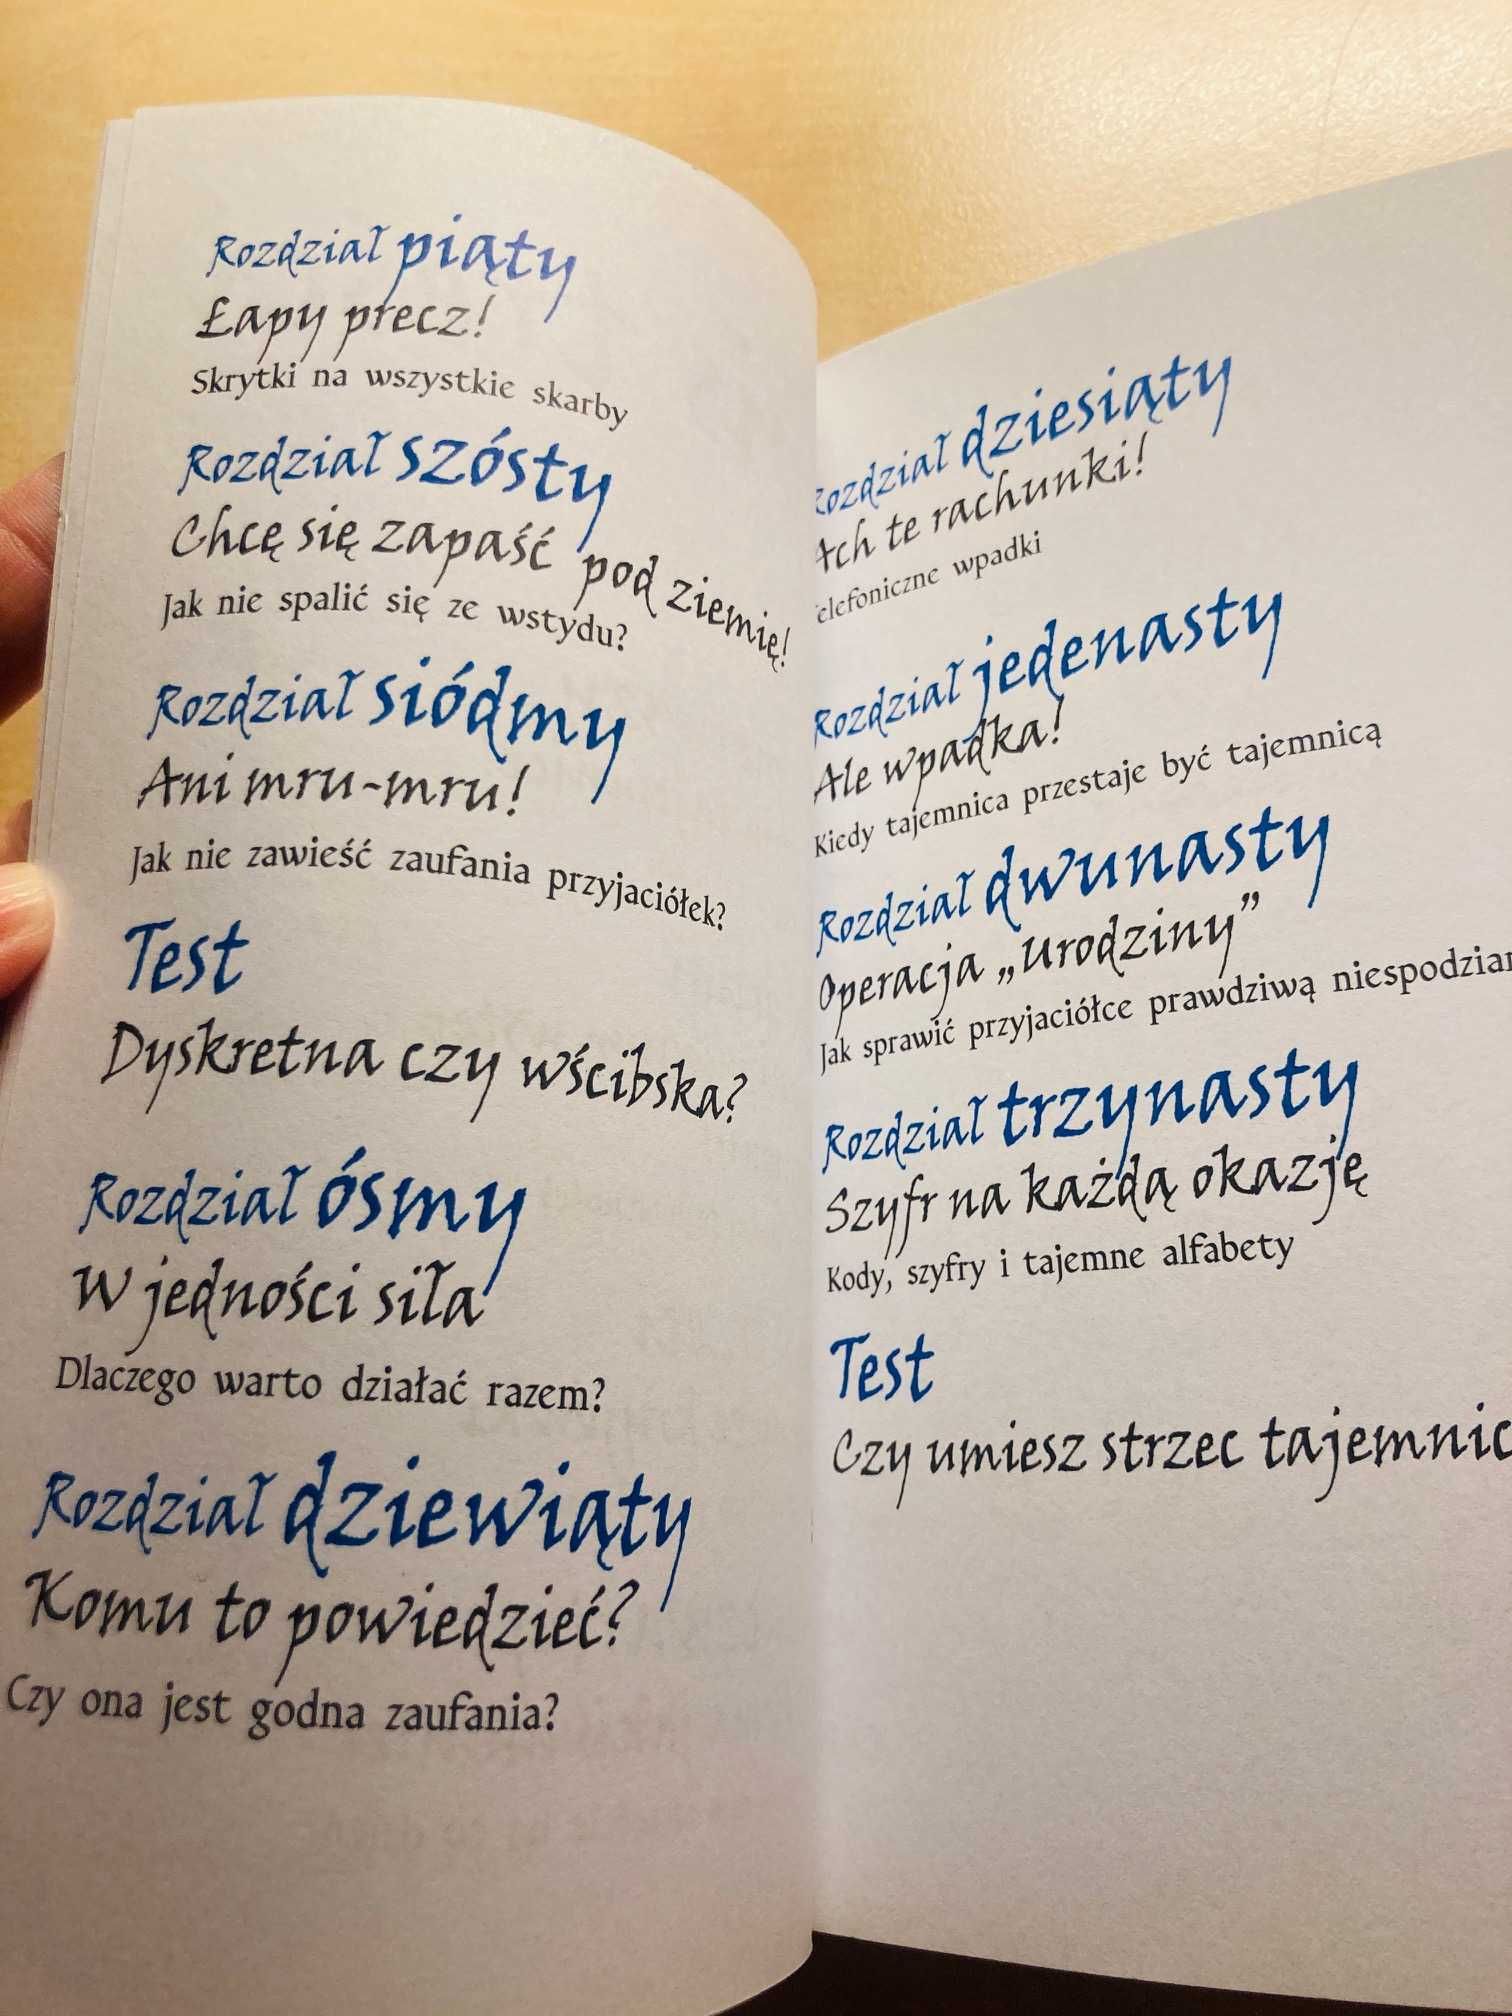 Rozdział piąty
Łapy precz!
Skrytki na wszystkie skarby
Rozdział szósty
Chcę się zapaść pod ziemię!
Jak nie spalić się ze wstydu?
Rozdział siódmy
Ani mru-mru!
Jak nie zawieść zaufania przyjaciółek?
Test
Dyskretna czy wścibska?
Rozdział ósmy
W jedności siła
Dlaczego warto działać razem?
Rozdział dziewiąty
Komu to powiedzieć?
Czy ona jest godna zaufania?
Rozdział dziesiąty
Ach te rachunki!
Telefoniczne wpadki
Rozdział jedenasty
Ale wpadka!
Kiedy tajemnica przestaje być tajemnicą
Rozdział dwunasty
Operacja „Urodziny”
Jak sprawić przyjaciółce prawdziwą
Rozdział trzynasty
Szyfr na każdą okazję
Kody, szyfry i tajemne alfabety
Test
Czy umiesz strzec